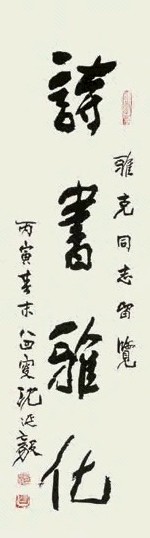 雅克同志留覽
詩書雅化
丙寅春末八四叟沈延毅